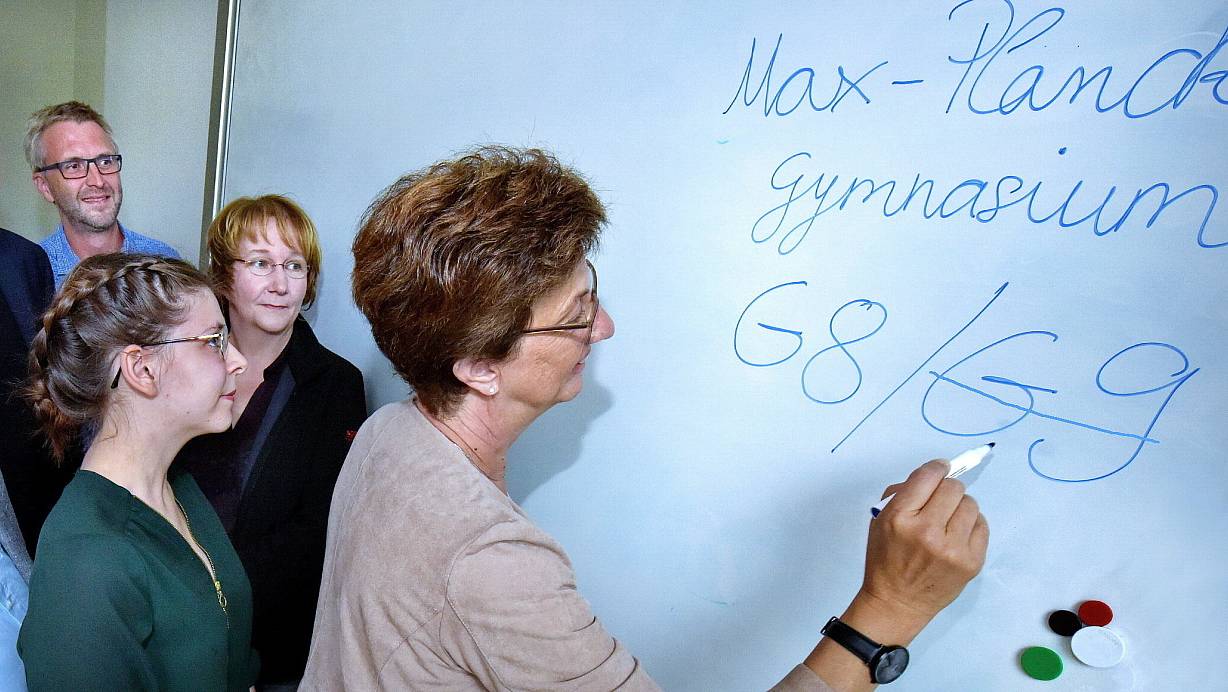 Max-Planck
Gymnasium
G8/G9